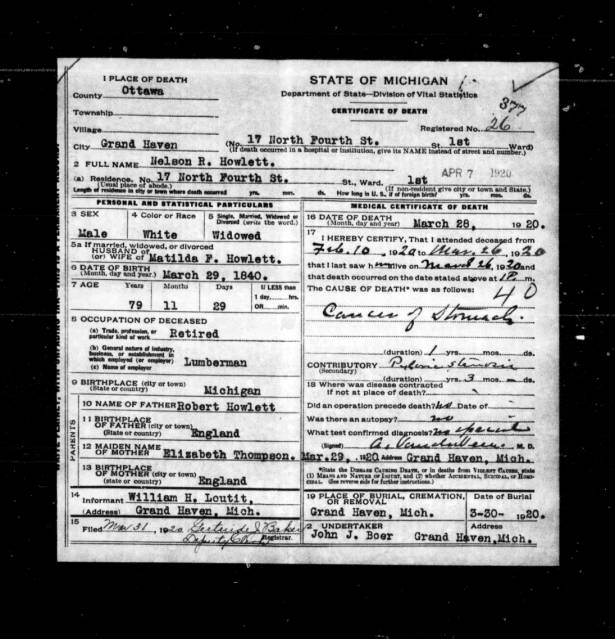 1 PLACE OF DEATH
County Ottawa
Township
Village
City Grand Haven
STATE OF MICHIGAN
Department of State—Division of Vital Statistics
CERTIFICATE OF DEATH
377
Registered No. 26
(No. 17 North Fourth St. St. 1st Ward)
(If death occurred in a hospital or institution, give its NAME instead of street and number.)
2 FULL NAME Nelson R. Howlett.
(a) Residence. No. 17 North Fourth St. St., Ward. 1st APR 7 1920
(Usual place of abode.) (If non-resident give city or town and State.)
Length of residence in city or town where death occurred yrs. mos. ds. How long in U. S., if of foreign birth? yrs. mos. ds.
PERSONAL AND STATISTICAL PARTICULARS
3 SEX Male
4 Color or Race White
5 Single, Married, Widowed or Divorced (write the word.) Widowed
5a If married, widowed, or divorced
HUSBAND of
(or) WIFE of Matilda F. Howlett.
6 DATE OF BIRTH
(Month, day and year) March 29, 1840.
7 AGE Years Months Days If LESS than
79 11 29 1 day,......hrs.
OR......min.
8 OCCUPATION OF DECEASED
(a) Trade, profession, or
particular kind of work Retired
(b) General nature of industry,
business, or establishment in
which employed (or employer) Lumberman
(c) Name of employer
9 BIRTHPLACE (city or town)
(State or country) Michigan
PARENTS
10 NAME OF FATHER Robert Howlett
11 BIRTHPLACE
OF FATHER (city or town)
(State or country) England
12 MAIDEN NAME
OF MOTHER Elizabeth Thompson.
13 BIRTHPLACE
OF MOTHER (city or town)
(State or country) England
14
Informant William H. Loutit,
(Address) Grand Haven, Mich.
15
Filed Mar 31, 1920 Gertrude I Baker
Deputy Clerk Registrar.
MEDICAL CERTIFICATE OF DEATH
16 DATE OF DEATH
(Month, day and year) March 28, 1920.
17
I HEREBY CERTIFY, That I attended deceased from
Feb. 10, 1920 to Mar. 26, 1920
that I last saw h alive on March 26, 1920 and
that death occurred on the date stated above at m.
The CAUSE OF DEATH* was as follows:
40
Cancer of Stomach.
(duration) 1 yrs. mos. ds.
CONTRIBUTORY Pyloric stenosis
(Secondary) (duration) yrs. 3 mos. ds.
18 Where was disease contracted
if not at place of death?
Did an operation precede death? no Date of
Was there an autopsy? no
What test confirmed diagnosis? no special
(Signed) M. D.
Mar.29, 1920 Address Grand Haven, Mich.
*State the DISEASE CAUSING DEATH, or in deaths from VIOLENT CAUSES, state
(1) MEANS AND NATURE OF INJURY, and (2) whether ACCIDENTAL, SUICIDAL, OR HOMICIDAL. (See reverse side for further instructions.)
19 PLACE OF BURIAL, CREMATION,
OR REMOVAL
Grand Haven, Mich.
Date of Burial
3-30- 1920.
UNDERTAKER
John J. Boer
Address
Grand Haven, Mich.